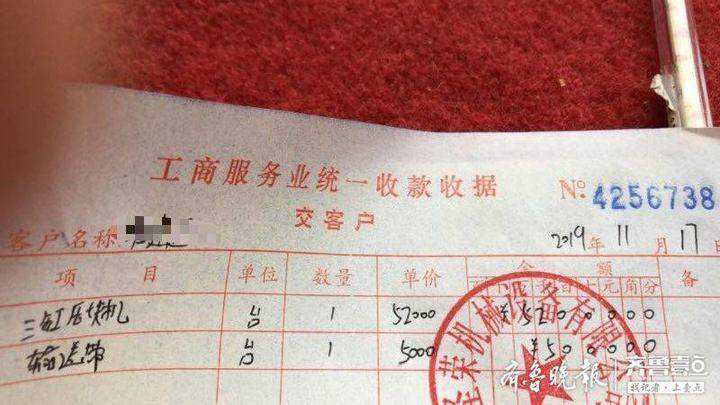 工商服务业统一收款收据
交客户
№ 4256738
客户名称
2019年11月17日
项目 单位 数量 单价 金额 备
十元角分
三缸压块机 台 1 52000 ¥5200000
输送带 台 1 5000 ¥500000
荣机械设备有限
齐鲁晚报
齐鲁壹点
找记者·上壹点